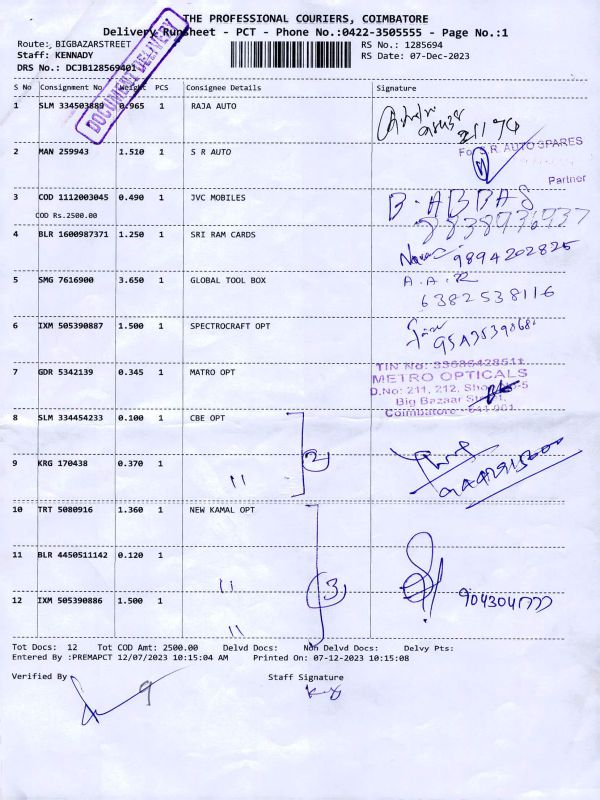 THE PROFESSIONAL COURIERS, COIMBATORE
Delivery RunSheet - PCT - Phone No.:0422-3505555 - Page No.:1
Route: BIGBAZARSTREET RS No.: 1285694
Staff: KENNADY RS Date: 07-Dec-2023
DRS No.: DCJB128569401
DOCUMENT DELIVERY
S No Consignment No Weight PCS Consignee Details Signature
1 SLM 334503889 0.965 1 RAJA AUTO
2 MAN 259943 1.510 1 S R AUTO
For S.R. AUTO SPARES
Partner
3 COD 1112003045 0.490 1 JVC MOBILES B. ABBAS
COD Rs.2500.00
4 BLR 1600987371 1.250 1 SRI RAM CARDS
9894202825
5 SMG 7616900 3.650 1 GLOBAL TOOL BOX A.A.R
6382538116
6 IXM 505390887 1.500 1 SPECTROCRAFT OPT
7 GDR 5342139 0.345 1 MATRO OPT
TIN No: 33686428511
METRO OPTICALS
D.No: 211, 212,
Big Bazaar
Coimbatore - 641 001
8 SLM 334454233 0.100 1 CBE OPT
2
9 KRG 170438 0.370 1 "
10 TRT 5080916 1.360 1 NEW KAMAL OPT
11 BLR 4450511142 0.120 1 "
3
12 IXM 505390886 1.500 1 "
Tot Docs: 12 Tot COD Amt: 2500.00 Delvd Docs: Non Delvd Docs: Delvy Pts:
Entered By :PREMAPCT 12/07/2023 10:15:04 AM Printed On: 07-12-2023 10:15:08
Verified By Staff Signature